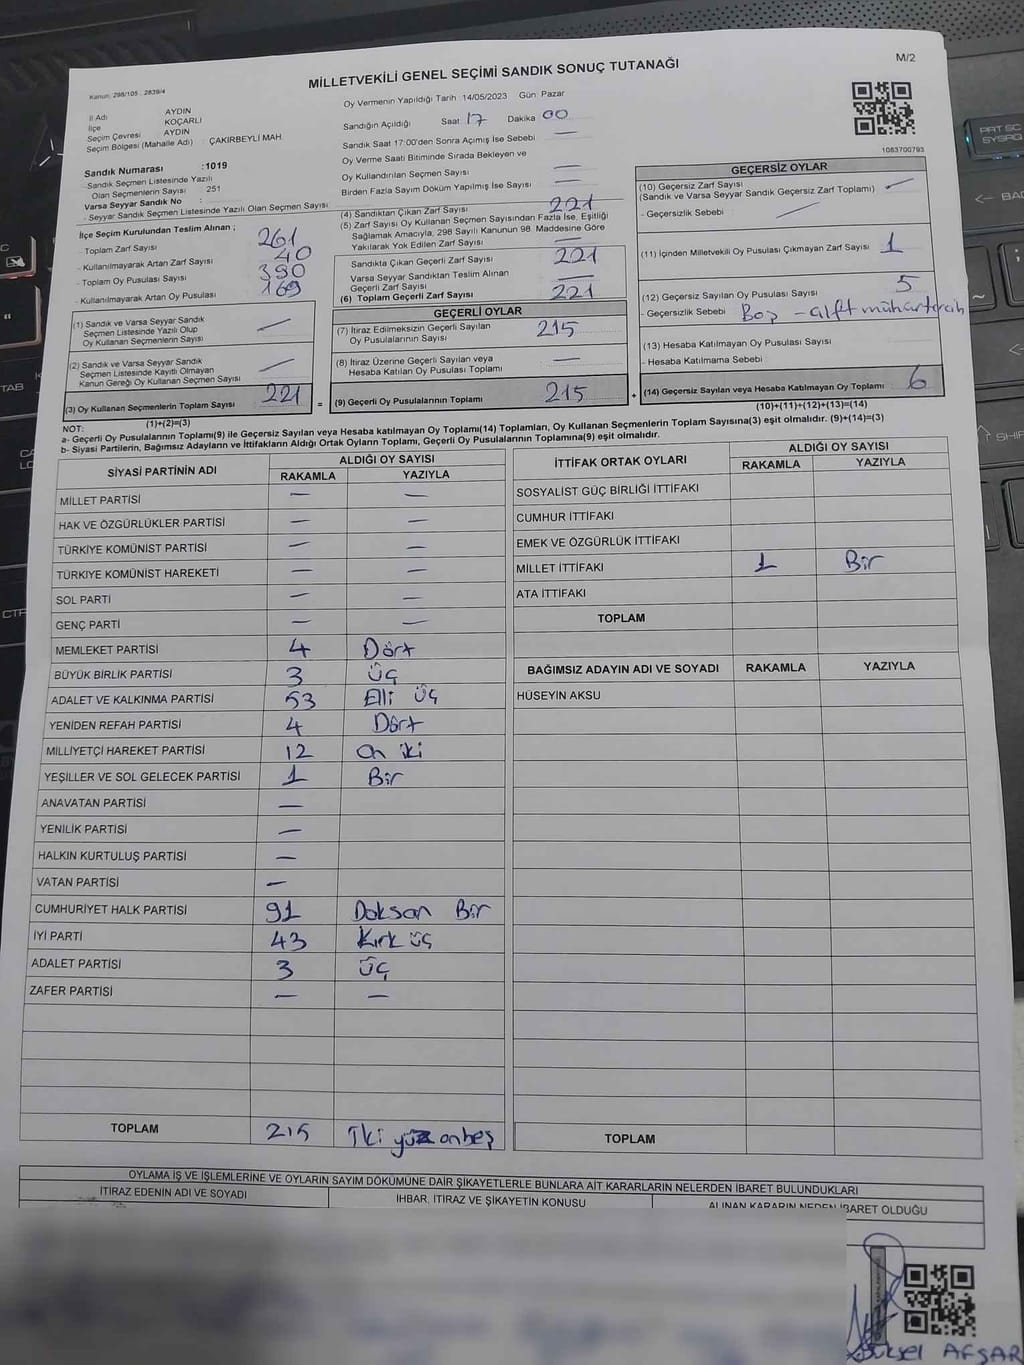 M/2
MİLLETVEKİLİ GENEL SEÇİMİ SANDIK SONUÇ TUTANAĞI
Kanun: 298/105 , 2839/4
İl Adı AYDIN
İlçe KOÇARLI
Seçim Çevresi AYDIN
Seçim Bölgesi (Mahalle Adı) : ÇAKIRBEYLİ MAH.
Sandık Numarası :1019
Sandık Seçmen Listesinde Yazılı
Olan Seçmenlerin Sayısı : 251
Varsa Seyyar Sandık No :
- Seyyar Sandık Seçmen Listesinde Yazılı Olan Seçmen Sayısı
Oy Vermenin Yapıldığı Tarih :14/05/2023 Gün: Pazar
Sandığın Açıldığı Saat 17 Dakika 00
Sandık Saat 17:00'den Sonra Açımış İse Sebebi —
Oy Verme Saati Bitiminde Sırada Bekleyen ve
Oy Kullandırılan Seçmen Sayısı —
Birden Fazla Sayım Döküm Yapılmış İse Sayısı —
1083700793
İlçe Seçim Kurulundan Teslim Alınan ;
- Toplam Zarf Sayısı 261
- Kullanılmayarak Artan Zarf Sayısı 40
- Toplam Oy Pusulası Sayısı 390
- Kullanılmayarak Artan Oy Pusulası 169
(1) Sandık ve Varsa Seyyar Sandık
Seçmen Listesinde Yazılı Olup
Oy Kullanan Seçmenlerin Sayısı —
(2) Sandık ve Varsa Seyyar Sandık
Seçmen Listesinde Kayıtlı Olmayan
Kanun Gereği Oy Kullanan Seçmen Sayısı —
(3) Oy Kullanan Seçmenlerin Toplam Sayısı 221 =
(1)+(2)=(3)
(4) Sandıktan Çıkan Zarf Sayısı 221
(5) Zarf Sayısı Oy Kullanan Seçmen Sayısından Fazla İse, Eşitliği
Sağlamak Amacıyla, 298 Sayılı Kanunun 98. Maddesine Göre
Yakılarak Yok Edilen Zarf Sayısı —
Sandıkta Çıkan Geçerli Zarf Sayısı 221
Varsa Seyyar Sandıktan Teslim Alınan
Geçerli Zarf Sayısı —
(6) Toplam Geçerli Zarf Sayısı 221
GEÇERLİ OYLAR
(7) İtiraz Edilmeksizin Geçerli Sayılan
Oy Pusulalarının Sayısı 215
(8) İtiraz Üzerine Geçerli Sayılan veya
Hesaba Katılan Oy Pusulası Toplamı —
(9) Geçerli Oy Pusulalarının Toplamı 215 +
GEÇERSİZ OYLAR
(10) Geçersiz Zarf Sayısı
(Sandık ve Varsa Seyyar Sandık Geçersiz Zarf Toplamı) —
- Geçersizlik Sebebi : —
(11) İçinden Milletvekili Oy Pusulası Çıkmayan Zarf Sayısı 1
(12) Geçersiz Sayılan Oy Pusulası Sayısı 5
- Geçersizlik Sebebi Boş -
(13) Hesaba Katılmayan Oy Pusulası Sayısı
- Hesaba Katılmama Sebebi :
(14) Geçersiz Sayılan veya Hesaba Katılmayan Oy Toplamı : 6
(10)+(11)+(12)+(13)=(14)
NOT:
a- Geçerli Oy Pusulalarının Toplamı(9) ile Geçersiz Sayılan veya Hesaba katılmayan Oy Toplamı(14) Toplamları, Oy Kullanan Seçmenlerin Toplam Sayısına(3) eşit olmalıdır. (9)+(14)=(3)
b- Siyasi Partilerin, Bağımsız Adayların ve İttifakların Aldığı Ortak Oyların Toplamı, Geçerli Oy Pusulalarının Toplamına(9) eşit olmalıdır.
SİYASİ PARTİNİN ADI ALDIĞI OY SAYISI
RAKAMLA YAZIYLA
MİLLET PARTİSİ — —
HAK VE ÖZGÜRLÜKLER PARTİSİ — —
TÜRKİYE KOMÜNİST PARTİSİ — —
TÜRKİYE KOMÜNİST HAREKETİ — —
SOL PARTİ — —
GENÇ PARTİ — —
MEMLEKET PARTİSİ 4 Dört
BÜYÜK BİRLİK PARTİSİ 3 Üç
ADALET VE KALKINMA PARTİSİ 53 Elli Üç
YENİDEN REFAH PARTİSİ 4 Dört
MİLLİYETÇİ HAREKET PARTİSİ 12 On iki
YEŞİLLER VE SOL GELECEK PARTİSİ 1 Bir
ANAVATAN PARTİSİ —
YENİLİK PARTİSİ —
HALKIN KURTULUŞ PARTİSİ —
VATAN PARTİSİ —
CUMHURİYET HALK PARTİSİ 91 Doksan Bir
İYİ PARTİ 43 Kırk üç
ADALET PARTİSİ 3 Üç
ZAFER PARTİSİ — —
TOPLAM 215 İki yüz onbeş
İTTİFAK ORTAK OYLARI ALDIĞI OY SAYISI
RAKAMLA YAZIYLA
SOSYALİST GÜÇ BİRLİĞİ İTTİFAKI
CUMHUR İTTİFAKI
EMEK VE ÖZGÜRLÜK İTTİFAKI
MİLLET İTTİFAKI 1 Bir
ATA İTTİFAKI
TOPLAM
BAĞIMSIZ ADAYIN ADI VE SOYADI RAKAMLA YAZIYLA
HÜSEYİN AKSU
TOPLAM
OYLAMA İŞ VE İŞLEMLERİNE VE OYLARIN SAYIM DÖKÜMÜNE DAİR ŞİKAYETLERLE BUNLARA AİT KARARLARIN NELERDEN İBARET BULUNDUKLARI
İTİRAZ EDENİN ADI VE SOYADI İHBAR, İTİRAZ VE ŞİKAYETİN KONUSU ALINAN KARARIN NEDEN İBARET OLDUĞU
AFŞAR
PRT SC
SYSRQ
TAB